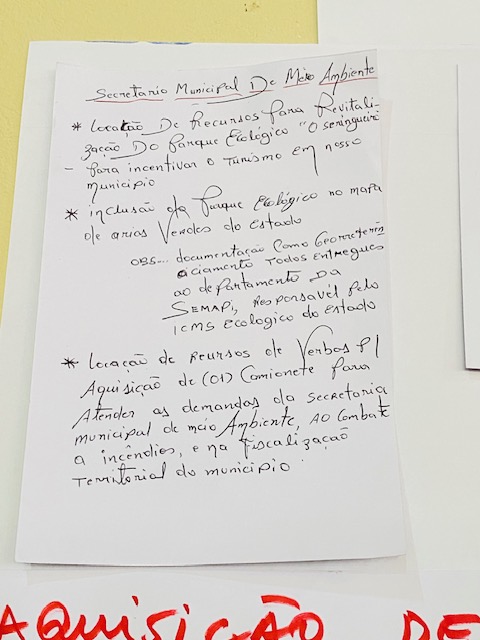 Secretario Municipal De Meio Ambiente
* Locação De Recursos Para Revitali-
zação Do Parque Ecológico "O seringueiro
- Para incentivar o Turismo em nosso
município
* inclusão do Parque Ecológico no mapa
de arias Verdes do Estado
OBS... documentação Como Georreferen
aciamento Todos Entregues
ao departamento DA
SEMAPI, Responsavél Pelo
ICMS Ecologico do Estado
* Locação de recursos de Verbas P/
Aquisição de (01) Camionete Para
Atender as demandas da secretaria
municipal de méio Ambiente, AO Combate
a incêndios, e na Fiscalização
Territorial do municipio.
AQUISIÇÃO DE